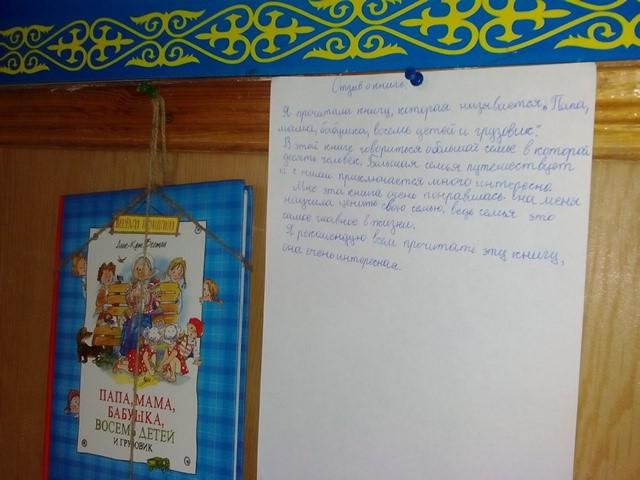 Отзыв о книге.
Я прочитала книгу, которая называется „Папа,
мама, бабушка, восемь детей и грузовик."
В этой книге говориться о большой семье в которой
десять человек. Большая семья путешествует
и с ними приключается много интересно.
Мне эта книга очень понравилась она меня
научила ценить свою семью, ведь семья это
самое главное в жизни.
Я рекомендую всем прочитать эту книгу,
она очень интересная.
ВЕСЁЛАЯ КОМПАНИЯ
Анне-Кат. Вестли
ПАПА, МАМА,
БАБУШКА,
ВОСЕМЬ ДЕТЕЙ
И ГРУЗОВИК